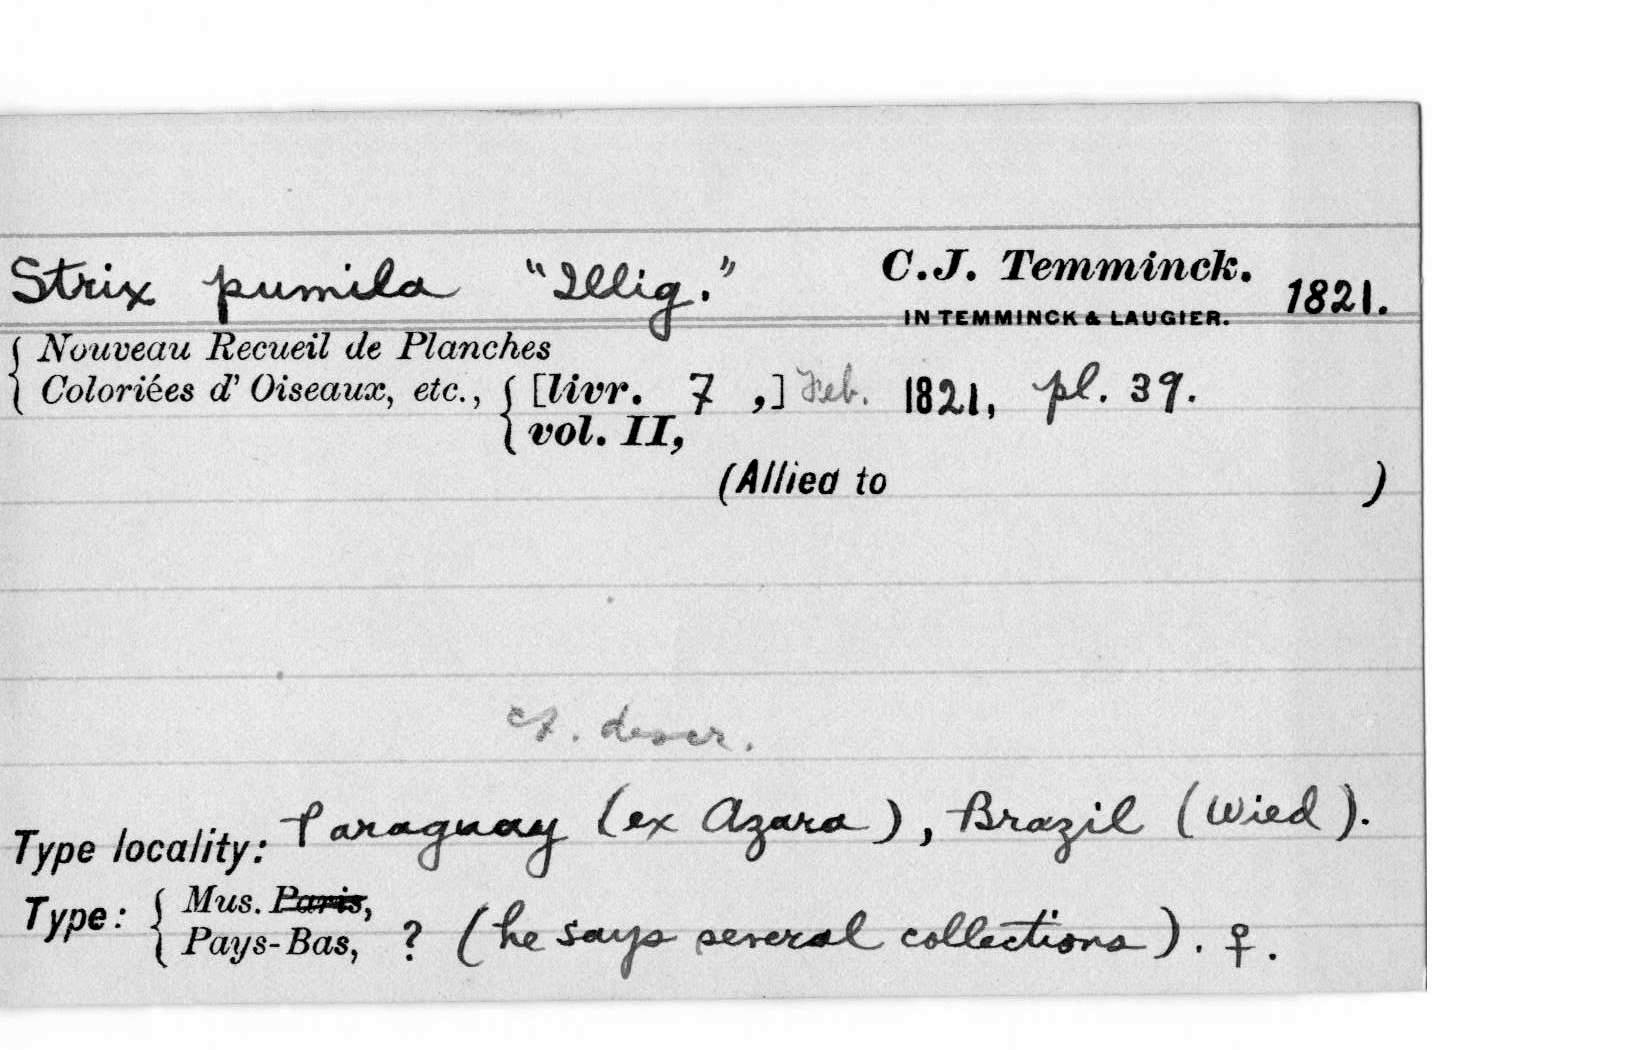 Strix pumila "Illig." C.J. Temminck. 1821.
IN TEMMINCK & LAUGIER.
Nouveau Recueil de Planches
Coloriées d' Oiseaux, etc., [livr. 7 ,] Feb. 1821, pl. 39.
vol. II,
(Allied to )
cf. descr.
Type locality: Paraguay (ex Azara), Brazil (Wied).
Type: Mus. Paris,
Pays-Bas, ? (he says several collections). ♀.